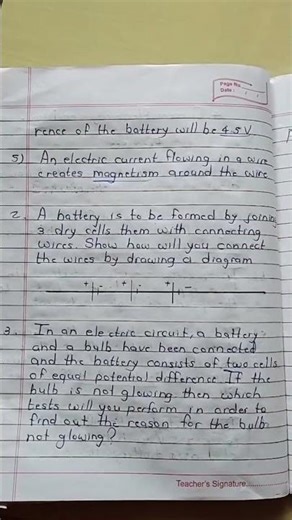 Page No.
Date :
rence of the battery will be 4.5V
5) An electric current flowing in a wire
creates magnetism around the wire
2. A battery is to be formed by joining
3 dry cells them with connecting
wires. Show how will you connect
the wires by drawing a diagram
+ - + - + -
3. In an electric circuit, a battery
and a bulb have been connected
and the battery consists of two cells
of equal potential difference. If the
bulb is not glowing then which
tests will you perform in order to
find out the reason for the bulb
not glowing?
Teacher's Signature